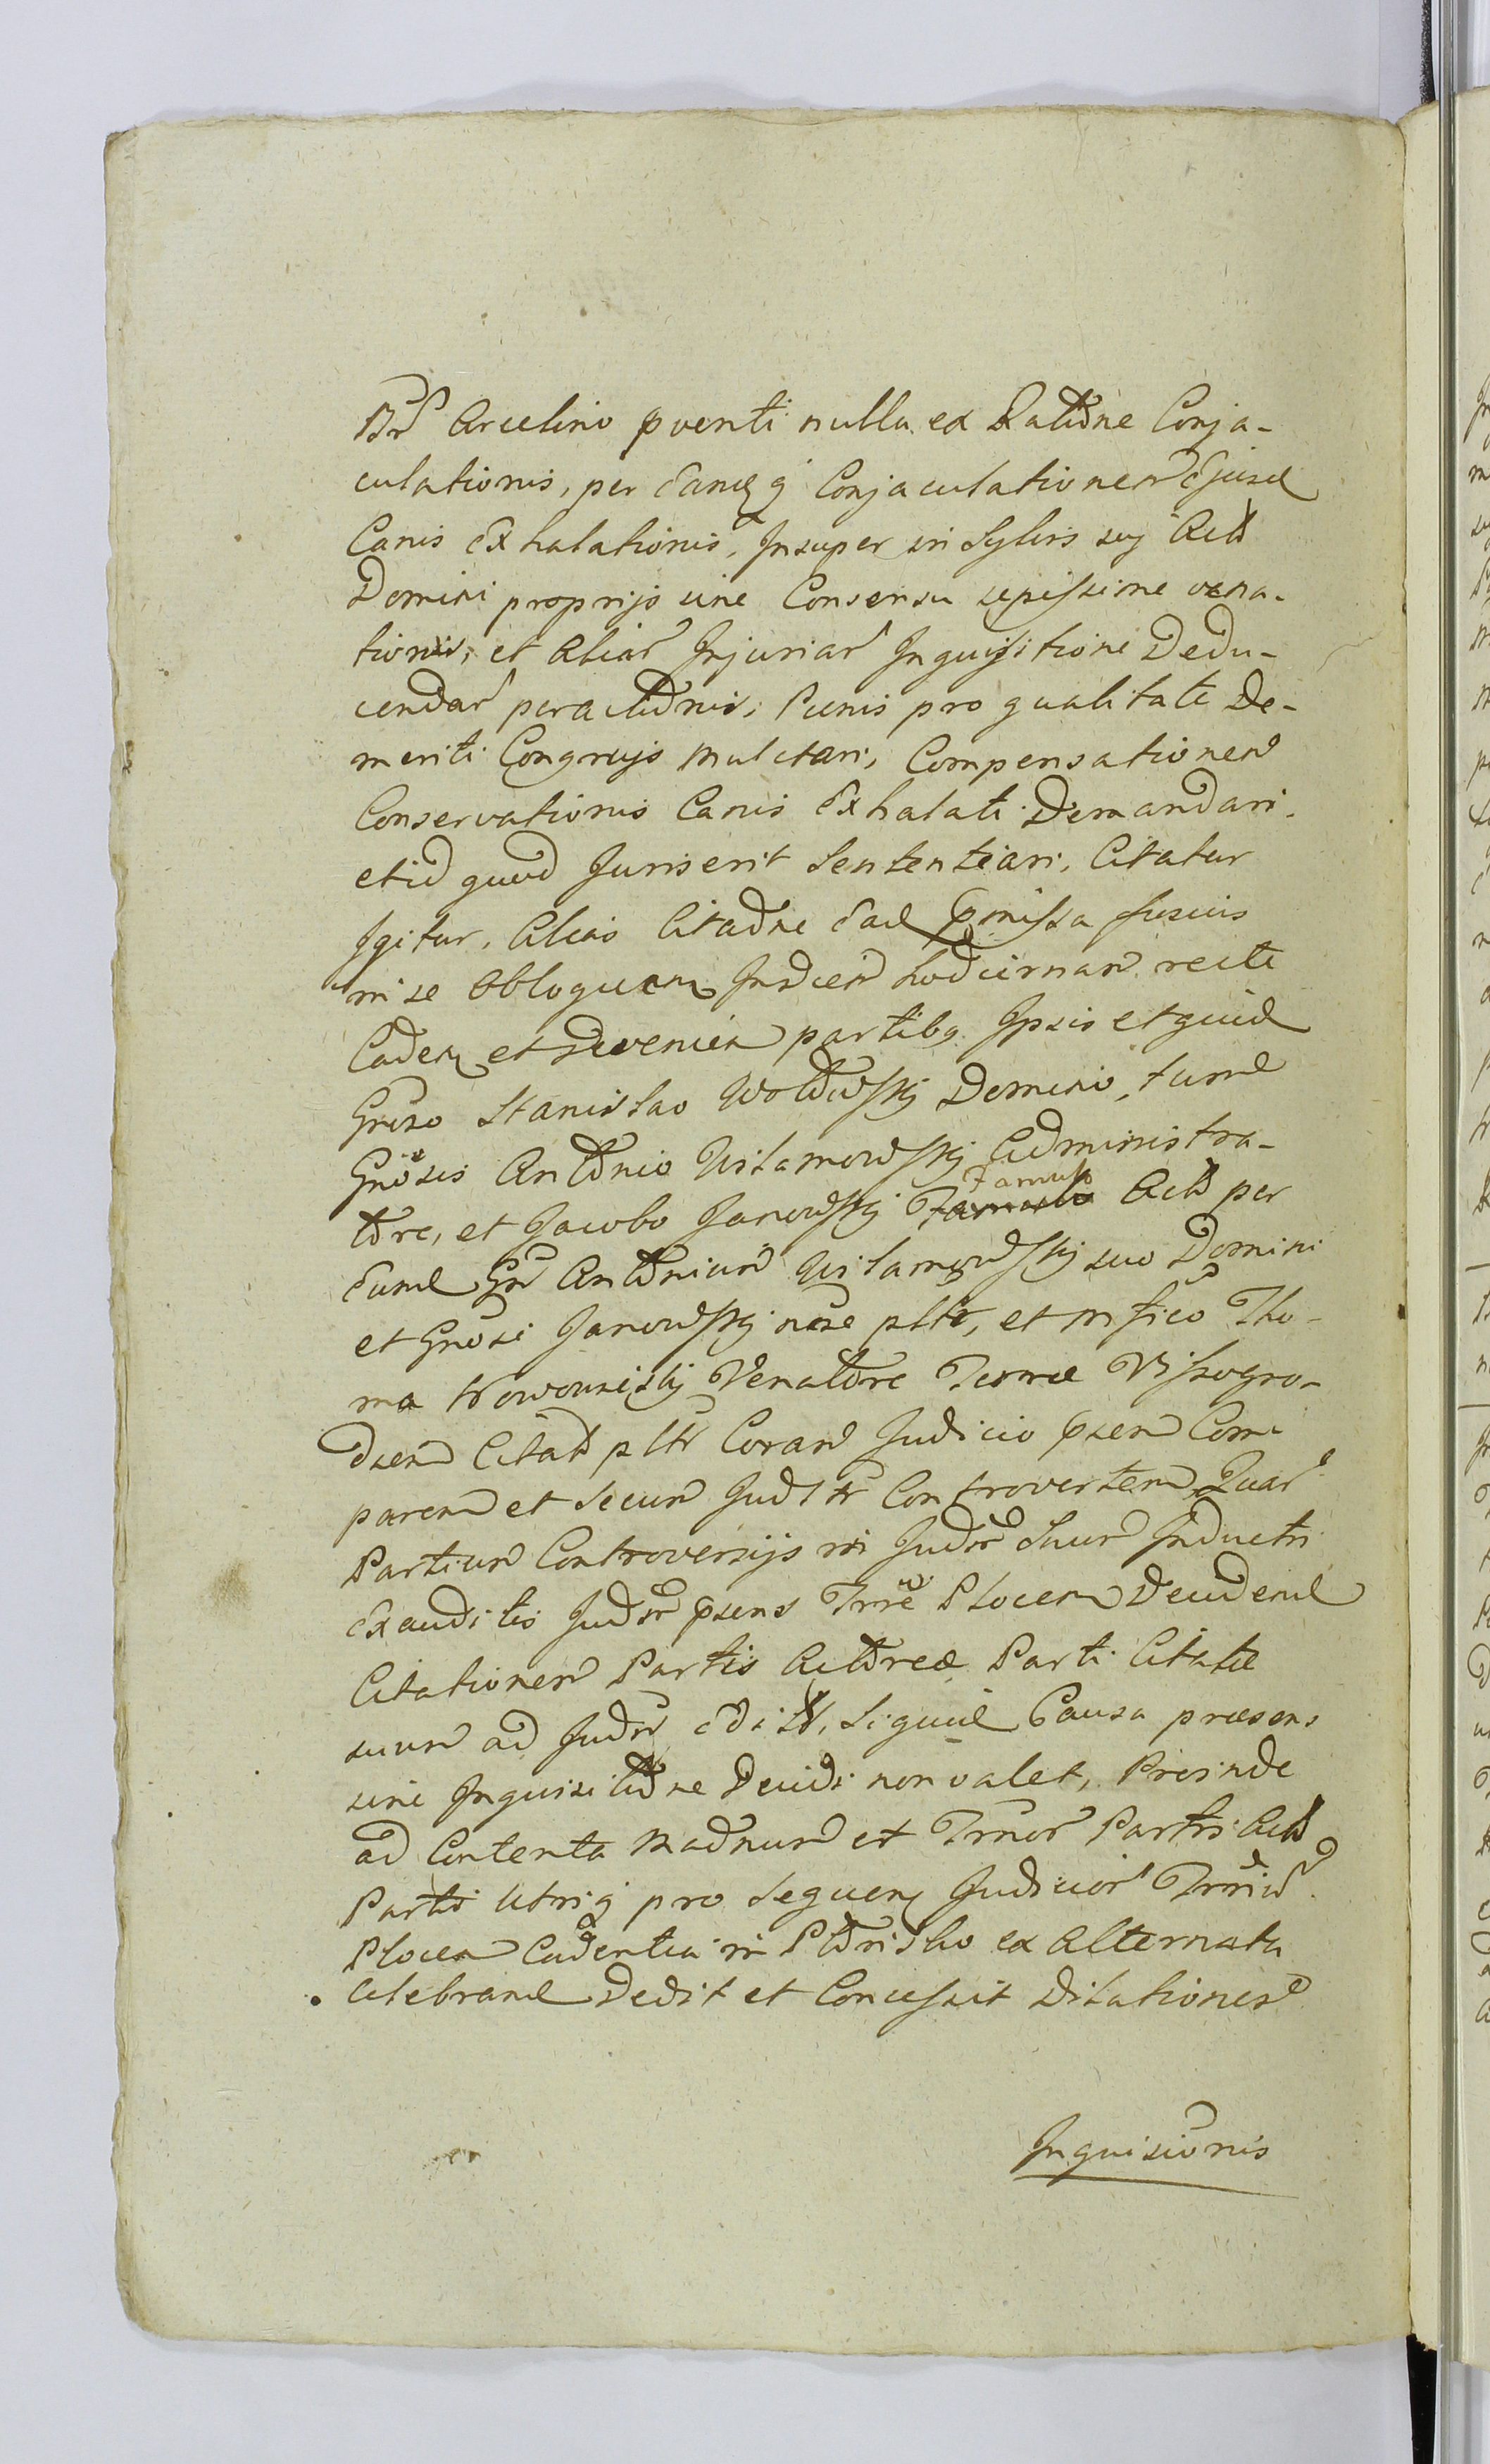 Bñ Arcelino pventi nulla ex Ratione Conja-
culationis, per eamq Conjaculationem Ejusd
Canis Exhalationis, Insuper in Sylvis suj Act
Domini proprijs sine Consensu sepissime vena-
tionis, et aliar Injuriar Inquisitione Dedu-
cendar peractionis, Penis pro qualitate De-
meriti Congruis mulctari, Compensationem
Conservationis Canis Exhalati Demandari,
et id quod Juris erit Sententiari, Citatur
Igitur, Alias Citatione Ead pmissa fusius
in se obloquen Indiem hodiernam recte
Caden et Devenien partibq Ipsis et quid
Gnoso Stanislao Domino, tum
Gnosis Antonio Wilamowskij Administra-
tore, et Jacobo Janowskij Famulo Act per
Eund Gñ Antonium Wilamowskij suo Domini
et Gnosi Janowskij nõie pltr, et Mfico Tho-
ma Venatore Terræ Wissogro-
dsen Citat pltr Coram Judicio psen Com-
paren et Secum Judltr Controverten, Quar
Partium Controversijs in Judm Suum Inductis
Exauditis Judm psens Trrẽ Plocen Decidend
Citationem Partis Actoreæ Parti Citatæ
suum ad Judm edi, Siquid Causa præsens
sine Inquisitione Decidi non valet, Proinde
ad Contenta Madnum et Trmor Partis Act
Parti Utriq pro sequen Judicior Trrium
Plocen Cadentia in Plonsko ex Alternata
Celebrand Dedit et Concessit Dilationem
Inquisiõnis